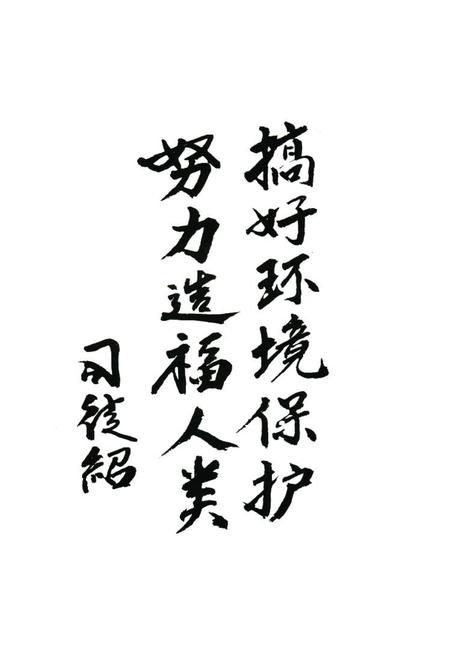 搞好环境保护
努力造福人类
司徒绍